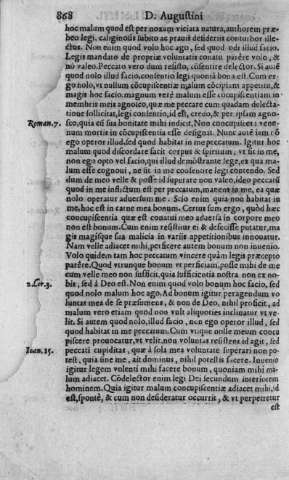 868 D. Augustini
hoc malum quod est per nouum vitiata natura, authorem præ-
beo legi. caliginosus subito ac præsti dictorum honor ille-
ctus. Non enim quod volo hoc ago, sed quod odi illud facio.
Legis mandato de propriæ voluntatis conatu parêre volo, &
nò valeo. Peccato vero dum resisto, cōsentire delector. Si autē
quod nolo illud facio, consentio legi quoniā bona est. Cum er-
go nolo, vt nullum cōcupiscentiæ malum
magis hoc facio, magnum verè malum esse cōcupiscentiam in
membris meis agnosco, quæ me peccare cum quadam delecta-
tione sollicitat, legi consentio, id est, credo, & per ipsam agno-
Roman. 7. sco, quia ei sua bonitas mihi indicit, Non concupisces: vene-
num mortis in cōcupiscentia esse designat. Nunc autē iam nō
ego operor illud, sed quod habitat in me peccatum. Igitur hoc
malum quod discordare facit corpus & spiritum, vt sit in me,
non ego opto vel facio, qui illud demōstrante lege, ex qua ma-
lum esse cognoui, ne sit in me consentire legi contendo. Sed
dum de meo velle & posse id superare non valeo, ideo peccati
quod in me insitum est per peccatum, manet in me, ea quæ
nolo operatur aduersum me. Scio enim quia non habitat in
me, hoc est in carne mea bonum. Certus sum ergo, quòd hæc
concupiscentia quæ est conatui meo aduersa in corpore meo
non est bonum. Cum enim resistitur ei & defecisse putatur, ma-
gis magisque sua malicia in variis appetitionibus innouatur.
Nam velle adiacet mihi, perficere autem bonum non inuenio.
Volo quidem tam hoc peccatum vincere quàm legis præcepto
parêre. Quod vtrunque bonum vt perficiam, posse mihi de me
cum velle meo non sufficit, quia sufficientia nostra non ex no-
2. Cor. 3. bis, sed à Deo est. Non enim quod volo bonum hoc facio, sed
quod nolo malum hoc ago. Ad bonum igitur peragendum vo-
luntas mea de se præsumens, & non de Deo, nihil proficit, ad
malum vero etiam quod non vult aliquoties inclinatur vt ve-
lit. Si autem quod nolo, illud facio, non ego operor illud, sed
quod habitat in me peccatum. Cum vtique nolle meum concu-
piscere prouocatur, vt velit, non voluntas resistens id agit, sed
Ioan. 15. peccati cupiditas, quæ à sola mea voluntate superari non po-
test, quia sine me, ait dominus, nihil potestis facere. Inuenio
igitur legem volenti mihi facere bonum, quoniam mihi ma-
lum adiacet. Cōdelector enim legi Dei secundum interiorem
hominem. Quia igitur malum concupiscentiæ adiacet mihi, id
est, spontè, & cum non desideratur occurrit, & vt perpetretur
est